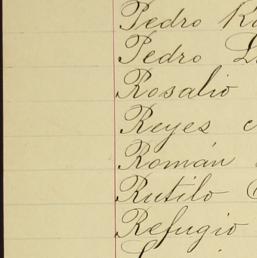 Pedro
Pedro
Rosalio
Reyes
Román
Rutilo
Refugio